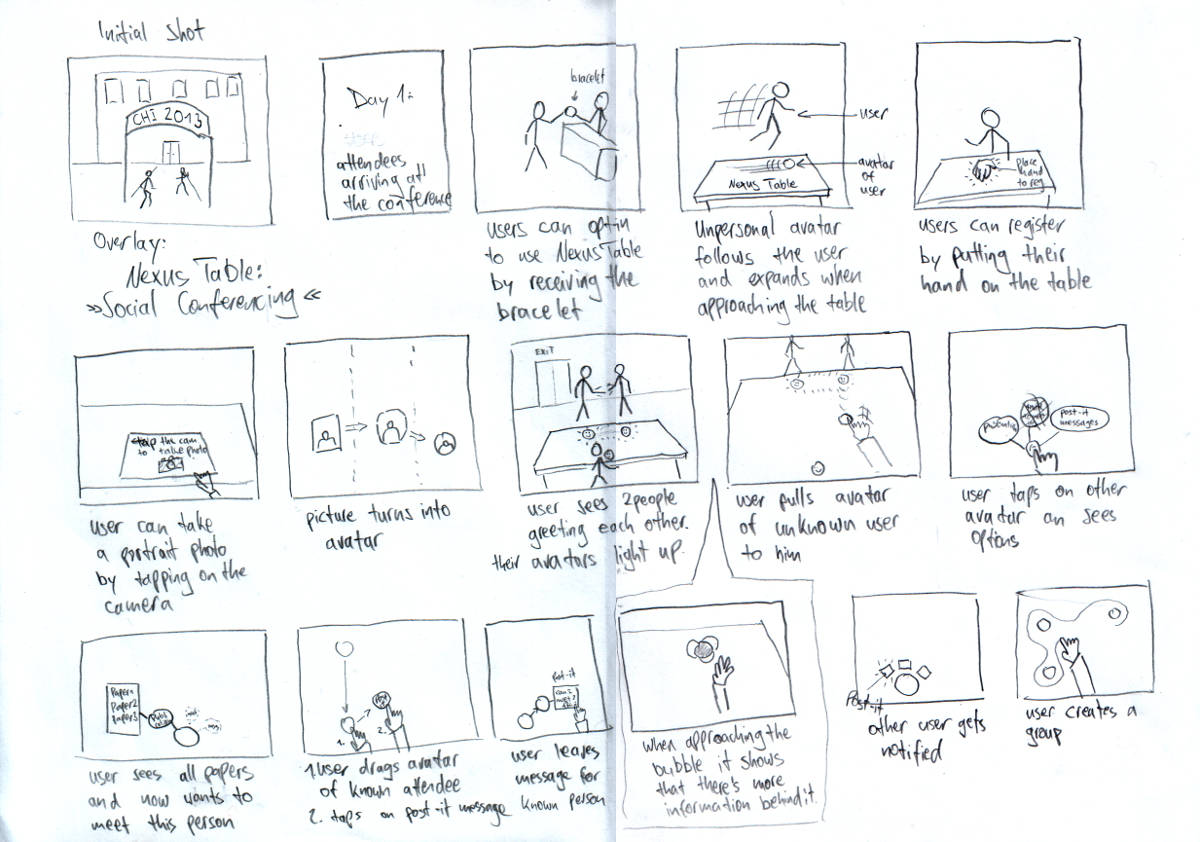 Initial Shot
CHI 2013
Overlay:
Nexus Table:
»Social Conferencing«
Day 1:
attendees
arriving at
the conference
bracelet
users can optin
to use NexusTable
by receiving the
bracelet
user
avatar
of
user
Nexus Table
Unpersonal avatar
follows the user
and expands when
approaching the table
Place
hand
to reg
users can register
by putting their
hand on the table
tap the cam
to take photo
user can take
a portrait photo
by tapping on the
camera
picture turns into
avatar
EXIT
user sees 2people
greeting each other.
their avatars light up.
user pulls avatar
of unknown user
to him
post-it
messages
user taps on other
avatar an sees
options
Paper1
Paper2
Paper3
user sees all papers
and now wants to
meet this person
1.
2.
1. user drags avatar
of known attendee
2. taps on post-it message
Post-it
user leaves
message for
known person
when approaching the
bubble it shows
that there's more
information behind it.
Post-it
other user gets
notified
user creates a
group